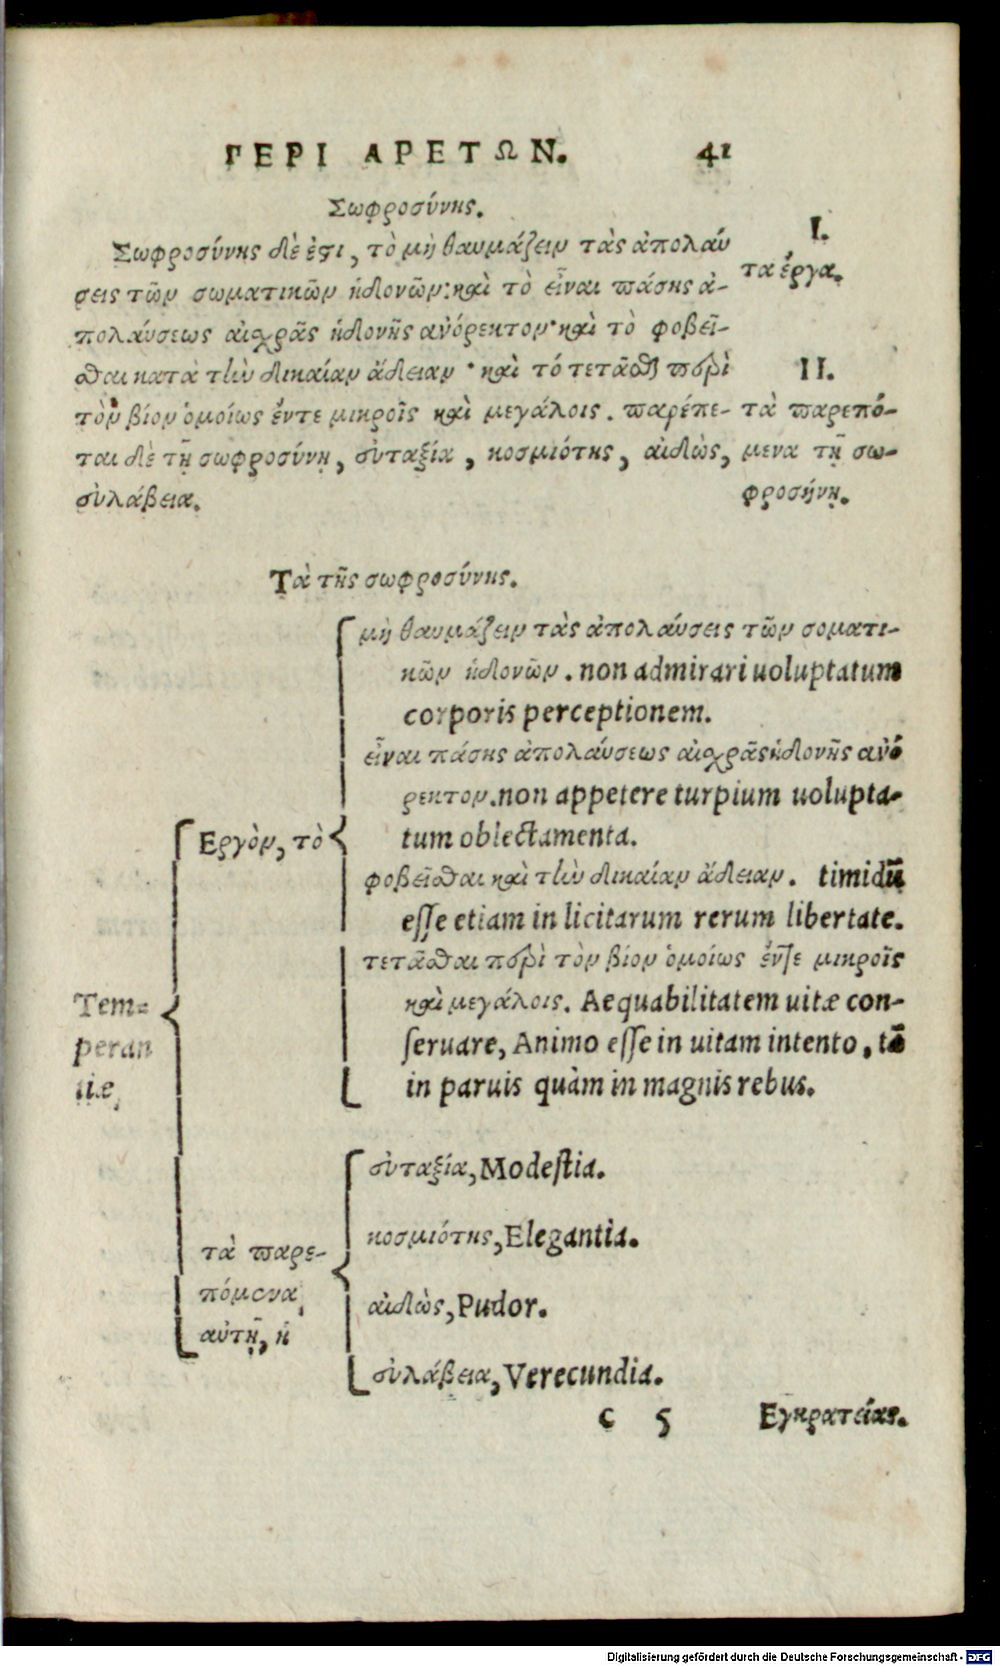 ΠΕΡΙ ΑΡΕΤΩΝ. 41
Σωφροσύνης.
Σωφροσύνης δὲ ἐστι, τὸ μὴ θαυμάζειν τὰς ἀπολαύ
σεις τῶν σωματικῶν ἡδονῶν· καὶ τὸ εἶναι πάσης ἀ-
πολαύσεως αἰσχρᾶς ἡδονῆς ἀνόρεκτον· καὶ τὸ φοβεῖ-
σθαι κατὰ τὴν δικαίαν ἄδειαν· καὶ τό τετᾶσθαι περὶ
τὸν βίον ὁμοίως ἔντε μικροῖς καὶ μεγάλοις. παρέπε-
ται δὲ τῇ σωφροσύνῃ, εὐταξία, κοσμιότης, αἰδὼς,
εὐλάβεια.
I.
τα έργα.
II.
τὰ παρεπό-
μενα τῇ σω-
φροσήνῃ.
Τὰ τῆς σωφροσύνης.
μὴ θαυμάζειν τὰς ἀπολαύσεις τῶν σοματι-
κῶν ἡδονῶν. non admirari uoluptatum
corporis perceptionem.
εἶναι πάσης ἀπολαύσεως αἰσχρᾶς ἡδονῆς ἀνό
ρεκτον. non appetere turpium uolupta-
tum oblectamenta.
Εργὸν, τὸ
φοβεῖσθαι καὶ τὴν δικαίαν ἄδειαν. timidū
esse etiam in licitarum rerum libertate.
τετᾶσθαι περὶ τὸν βίον ὁμοίως ἔντε μικροῖς
καὶ μεγάλοις. Aequabilitatem uitæ con-
seruare, Animo esse in uitam intento, tā
in paruis quàm in magnis rebus.
Tem=
peran
tiæ,
εὐταξία, Modestia.
κοσμιότης, Elegantia.
τὰ παρε-
πόμενα
αὐτῇ, ἡ
αἰδὼς, Pudor.
εὐλάβεια, Verecundia.
c 5 Εγκρατείας.
Digitalisierung gefördert durch die Deutsche Forschungsgemeinschaft - DFG